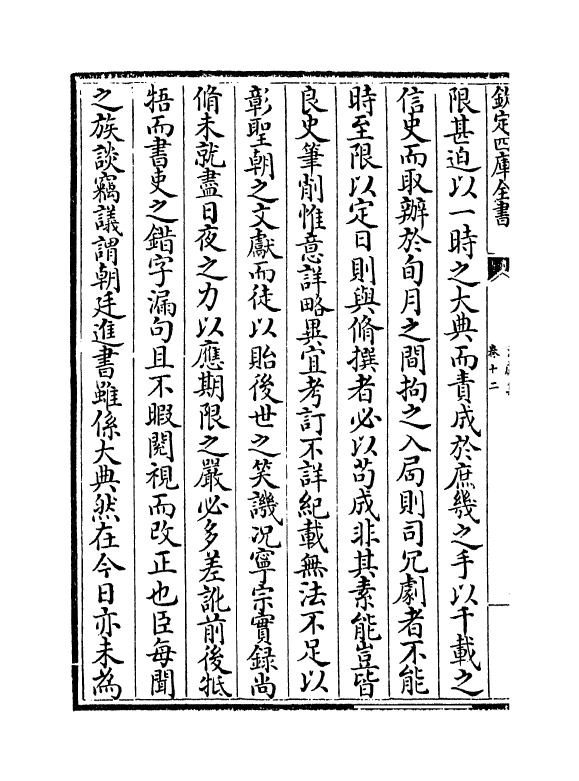 欽定四庫全書
卷十二
限甚迫以一時之大典而責成於庶幾之手以千載之
信史而取辦於旬月之間拘之入局則司冗劇者不能
時至限以定日則與脩撰者必以苟成非其素能豈皆
良史筆削惟意詳略異宜考訂不詳紀載無法不足以
彰聖朝之文獻而徒以貽後世之笑譏况寧宗實録尚
脩未就盡日夜之力以應期限之嚴必多差訛前後牴
牾而書吏之錯字漏句且不暇閱視而改正也臣每聞
之族談竊議謂朝廷進書雖係大典然在今日亦未為